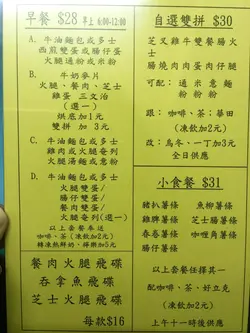 早餐 $28 早上 6:00-12:00
A. 牛油麵包或多士
西煎雙蛋或腸仔蛋
火腿通粉或米粉
B. 牛奶麥片
火腿、餐肉、芝士
雞蛋 三文治
(選一)
烘底加1元
雙拼 加 3元
C. 牛油麵包或多士
雞肉或火腿奄列
火腿湯麵或意粉
D. 牛油麵包或多士
火腿雙蛋/
腸仔雙蛋/
餐肉雙蛋/
火腿奄列(選一)
以上套餐奉送
咖啡、茶(凍飲加2元)
轉凍熱鮮奶、鮮樂加5元
餐肉火腿飛碟
吞拿魚飛碟
芝士火腿飛碟
每款$16
自選雙拼 $30
芝叉雞牛雙餐腸火
士
腸燒肉肉蛋肉仔腿
可配: 通米意麵
粉粉粉
跟: 咖啡、茶、華田
(凍飲加2元)
改: 烏冬、一丁加3元
全日供應
小食餐 $31
豬扒薯條
魚柳薯條
雞脾薯條
芝士腸薯條
春卷薯條
咖喱角薯條
腸仔薯條
以上套餐任擇其一
配咖啡、茶、好立克
(凍飲加2元)
上午十一時後供應